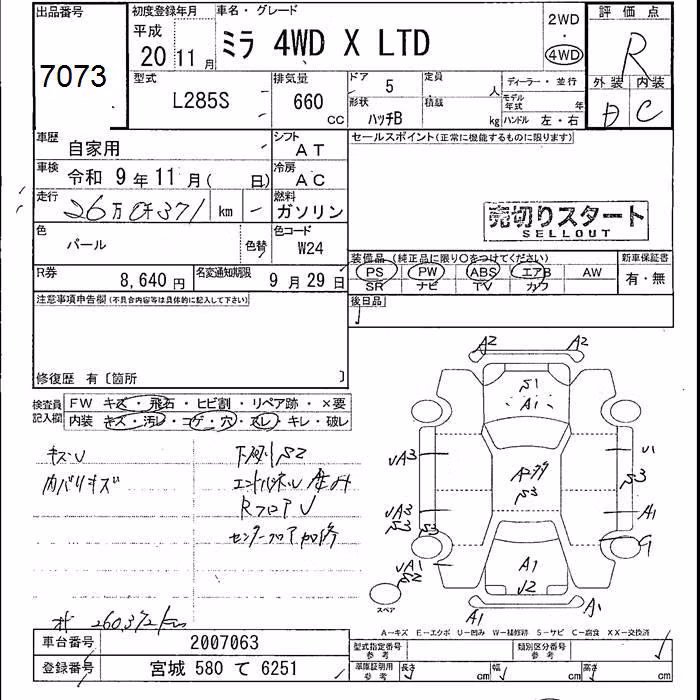 出品番号
7073
初度登録年月
平成
20 11 月
車名・グレード
ミラ 4WD X LTD
2WD
・
4WD
評価点
R
外装 内装
D C
型式
L285S
排気量
660
CC
ドア
5
形状
ハッチB
定員
人
積載
kg
ディーラー・並行
モデル
年式 年
ハンドル 左・右
車歴
自家用
シフト
AT
車検
令和 9 年 11 月 ( 日)
冷房
AC
走行
km
燃料
ガソリン
色
パール
色替
カラーコード
W24
R券
8,640 円
名変通知期限
9 月 29 日
セールスポイント(正常に機能するものに限ります)
売切りスタート
SELLOUT
装備品(純正品に限り○をつけてください)
PS PW ABS エアB AW
SR ナビ TV カワ
新車保証書
有・無
後日品
注意事項申告欄(不具合内容等は具体的に記入して下さい)
修復歴 有〔箇所 〕
検査員
記入欄
FW キズ・飛石・ヒビ割・リペア跡・×要
内装 キズ・汚レ・コゲ・穴・スレ・キレ・破レ
キズU
内バリキズ
下廻りS2
RフロアU
センターフロア加修
260,372km
A2 A2
S1
A1
UA3 U1
S3
S3
UA3 A1
S3 S3
G
UA1
S2
A1
U2
A1 A1
スペア
A-キズ E-エクボ U-凹み W-補修跡 S-サビ C-腐食 XX-交換済
車台番号 2007063
登録番号 宮城 580 て 6251
型式指定番号
参考
類別区分番号
参考
車庫証明用
参考
長さ cm 幅 cm 高さ cm